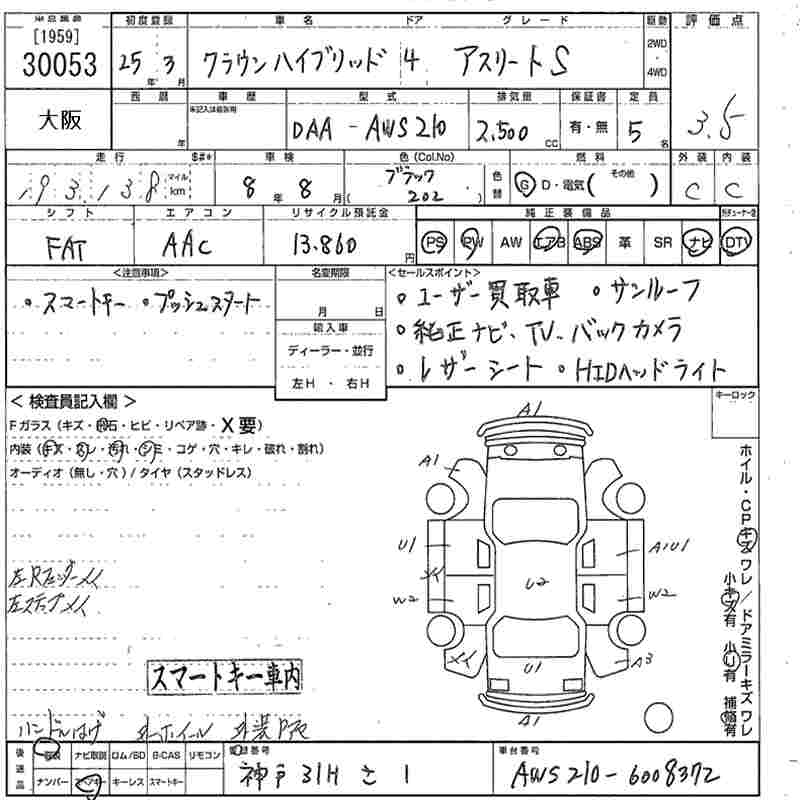 [1959] 初度登録 車名 ドア グレード 駆動 評価点
30053 25年 3月 クラウンハイブリッド 4 アスリートS 2WD・4WD 3.5
大阪 西暦 年 車歴 未記入は自家用 型式 DAA-AWS210 排気量 2,500 CC 保証書 有・無 定員 5名
走行 193,138 マイル km $#* 車検 8年 8月 色(Col.No) ブラック (202) 色替 燃料 G D・電気( その他 ) 外装 C 内装 C
シフト エアコン リサイクル預託金 純正装備品
FAT AAC 13.860円 PS PW AW エアB ABS 革 SR ナビ DTV
<注意事項> 名変期限 <セールスポイント>
・スマートキー ・プッシュスタート 月 日 ・ユーザー買取車 ・サンルーフ
輸入車 ・純正ナビ、TV、バックカメラ
ディーラー・並行
左H・右H ・レザーシート ・HIDヘッドライト
<検査員記入欄> キーロック
Fガラス(キズ・飛石・ヒビ・リペア跡・X要)
内装(キズ・スレ・汚れ・シミ・コゲ・穴・キレ・破れ・割れ)
オーディオ(無し・穴)/タイヤ(スタッドレス)
A1
A1
U1 A1U1
U2
W2 W2
A3
U1
A1
ホイル・CPキズワレ/ドアミラーキズワレ
小キズ有 小U有 補修有
左ステップメイ
スマートキー車内
ハンドルはげ
後送品 ナビ取説 ロム/BD B-CAS リモコン 登録番号 車台番号
ナンバー スペアキー キーレス スマートキー 神戸 31H さ 1 AWS210-6008372